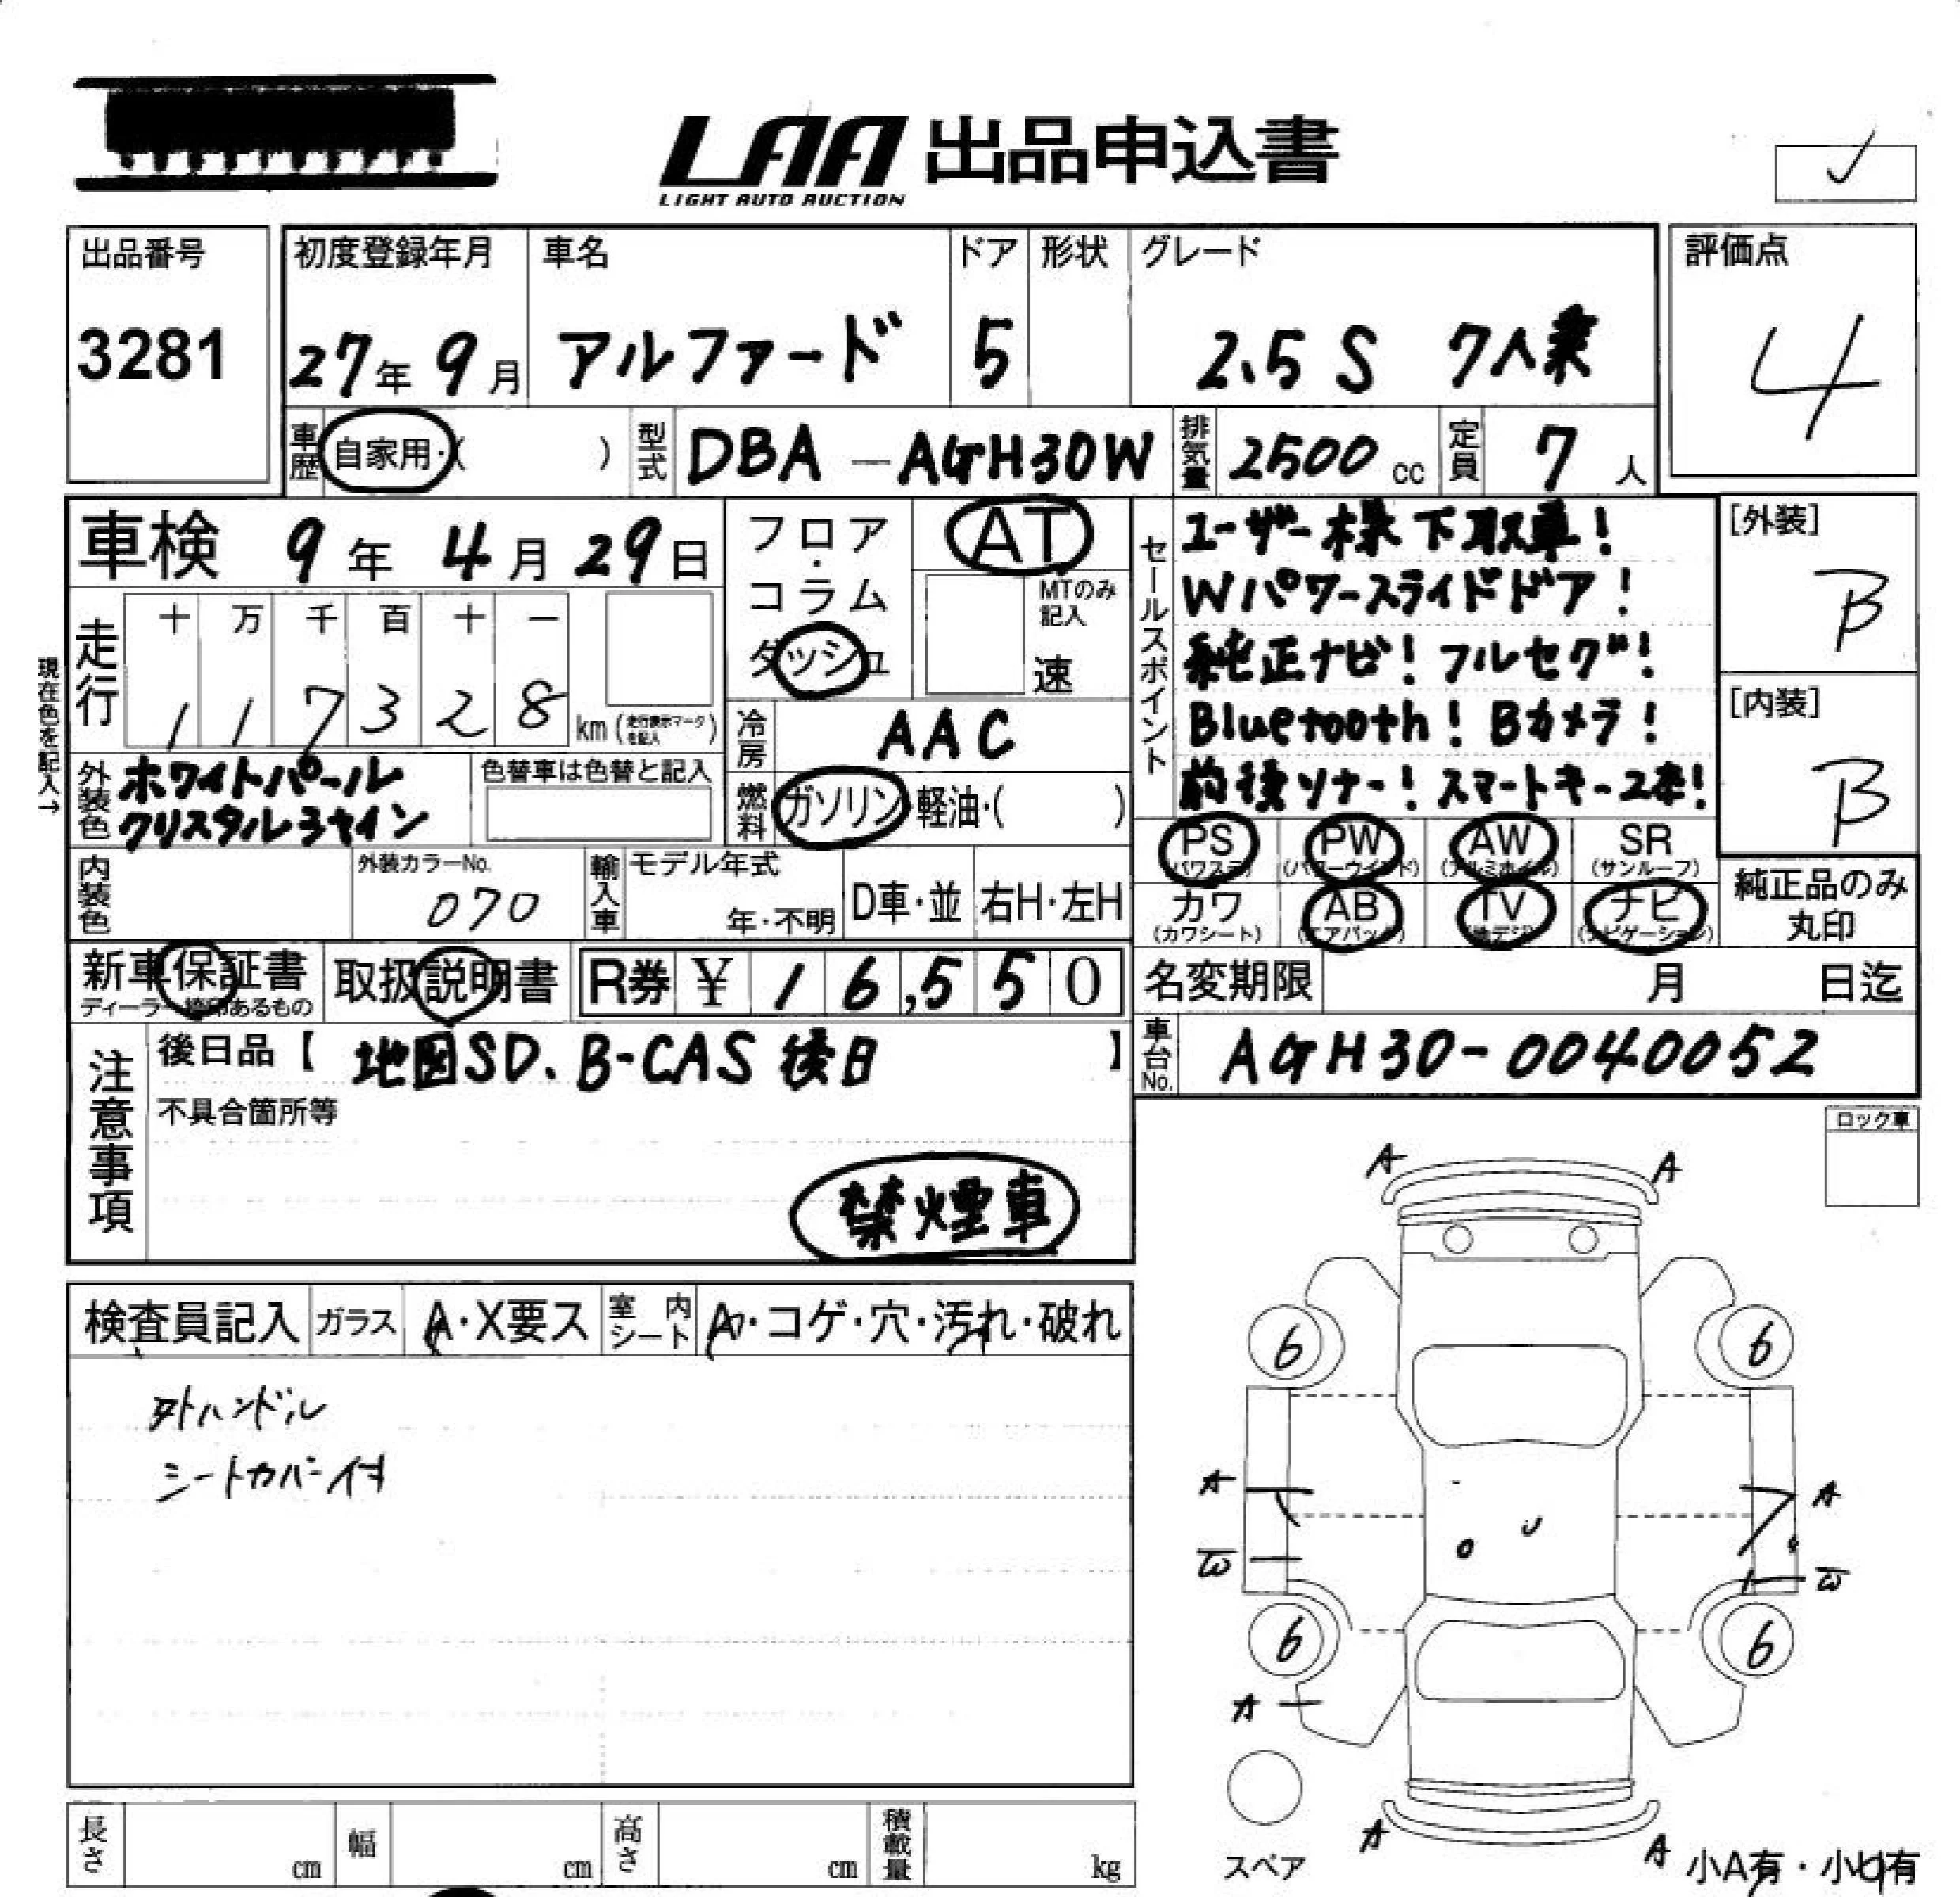 LAA 出品申込書
LIGHT AUTO AUCTION
出品番号
3281
初度登録年月
27年 9月
車名
アルファード
ドア
5
形状
グレード
2.5 S 7人乗
評価点
4
車歴 自家用・( )
型式 DBA-AGH30W
排気量 2500 cc
定員 7 人
車検 9年 4月 29日
フロア・コラム ダッシュ
AT
MTのみ記入
速
セールスポイント
ユーザー様下取車!
Wパワースライドドア!
純正ナビ!フルセグ!
Bluetooth!Bカメラ!
前後ソナー!スマートキー2本!
[外装]
B
[内装]
B
現在色を記入→
走行
十 万 千 百 十 一
1 1 7 3 2 8 km (走行表示マークを記入)
冷房 AAC
外装色 ホワイトパール
クリスタルシャイン
色替車は色替と記入
燃料 ガソリン 軽油・( )
PS (パワステ)
PW (パワーウインド)
AW (アルミホイル)
SR (サンルーフ)
カワ (カワシート)
AB (エアバック)
TV (地デジ)
ナビ (ナビゲーション)
純正品のみ
丸印
内装色
外装カラーNo.
070
輸入車
モデル年式
年・不明
D車・並
右H・左H
新車保証書
ディーラー 捺印あるもの
取扱説明書
R券 ¥ 16,550
名変期限 月 日迄
注意事項
後日品【 地図SD、B-CAS 後日 】
不具合箇所等
禁煙車
車台No. AGH30-0040052
ロック車
検査員記入
ガラス A・X要ス
室内シート A・コゲ・穴・汚れ・破れ
外ハンドル
シートカバー付
A A
6 6
A A
W W
6 6
A
A A
スペア
小A有・小U有
長さ cm
幅 cm
高さ cm
積載量 kg